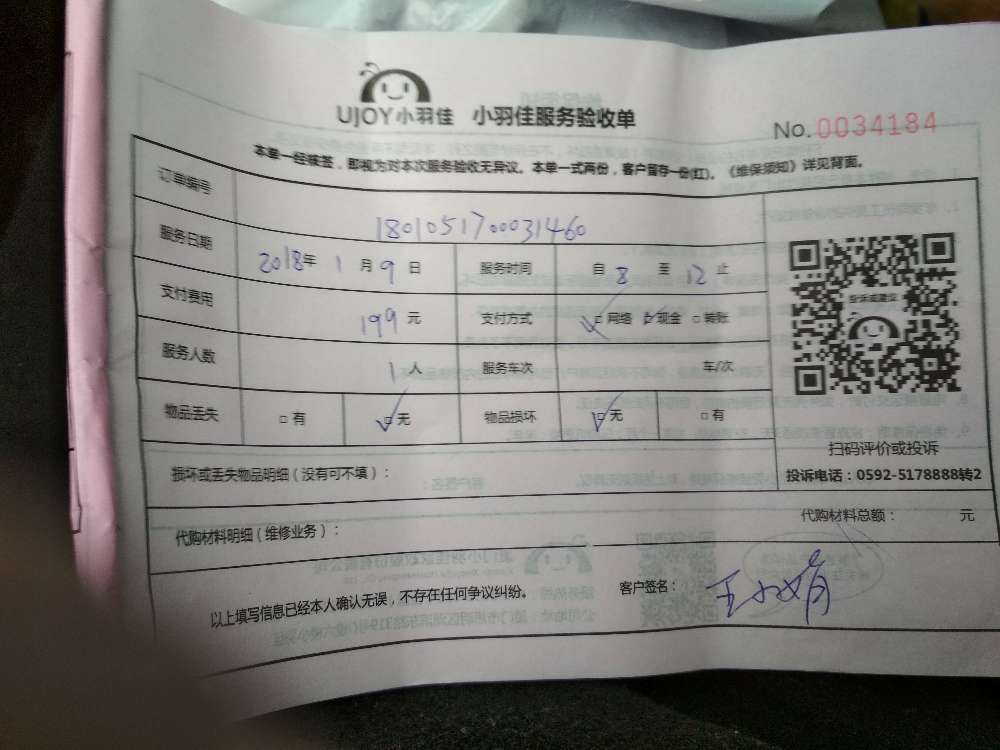 UJOY小羽佳 小羽佳服务验收单
No.0034184
本单一经核签，即视为对本次服务验收无异议。本单一式两份，客户留存一份(红)。《维保须知》详见背面。
订单编号 180105170031460
服务日期 2018年 1月 9日 服务时间 自 8 至 12 止
支付费用 199元 支付方式 ☑网络 ☑现金 □转账
服务人数 1人 服务车次 车/次
物品丢失 □有 ☑无 物品损坏 ☑无 □有
投诉或建议
扫码评价或投诉
投诉电话：0592-5178888转2
损坏或丢失物品明细（没有可不填）：
代购材料明细（维修业务）： 代购材料总额： 元
以上填写信息已经本人确认无误，不存在任何争议纠纷。 客户签名：